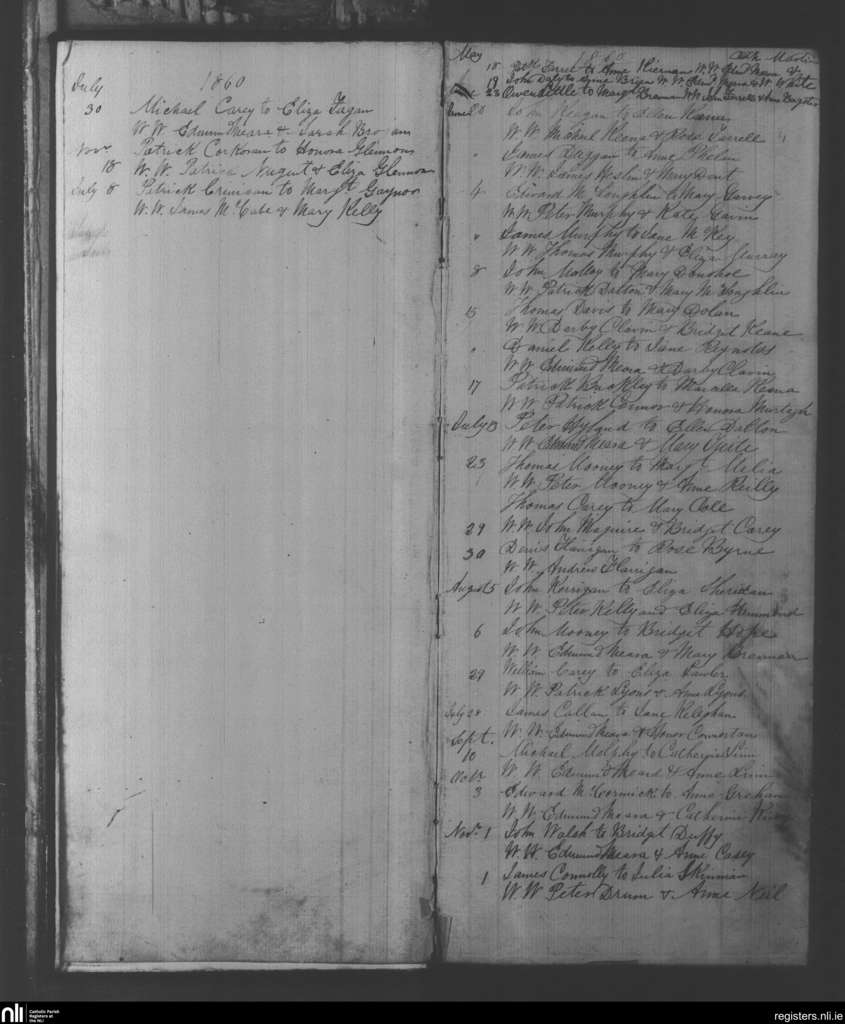 1860
July
30 Michael Carey to Eliza Fagan
W W Edmund Meara & Sarah
Novr Patrick Corkoran to Honora Glennon
18 W. W. Patrick Nugent & Eliza Glennon
July 8 Patrick Crinigan to Margt Gaynor
W. W. James McCabe & Mary Kelly
May
18 to Anne Kiernan W. W.
19 John Daly to Anne Brien W W
23 Owen to Margt Brennan W W John Farrell & Anne
John Keagan to Ellen
W W Michael Keena & Rose Farrell
" James Duggan to Anne Phelan
W W James & Mary Dent
4 Edward McLoughlin to Mary Garvey
W W Peter Murphy & Kate Gavin
" James Murphy to Jane McKey
W W Thomas Murphy & Eliza Murray
8 John Molloy to Mary Donohoe
W W Patrick Dalton & Mary McLoughlin
15 Thomas Davis to Mary Dolan
W W Darby Clavin & Bridget Keane
" Daniel Kelly to Jane Reynolds
W W Edmund Meara & Darby Clavin
17 Patrick to Keena
W W Patrick Connor & Honora Murtagh
July 13 Peter Hyland to Ellen Dalton
W W Edmund Meara & Mary
23 Thomas Mooney to Margt Melia
W W Peter Mooney & Anne Reilly
Thomas Carey to Mary Cole
29 W W John Maguire & Bridget Carey
30 Denis Flanigan to Rose Byrne
W W Andrew Flanigan
August 5 John Kerrigan to Eliza Sheridan
W W Peter Kelly and Eliza
6 John Mooney to Bridget Hope
W. W Edmund Meara & Mary Brennan
29 William Carey to Eliza Lawler
W W Patrick Lyons & Anne Lyons
July 28 James Callan to Jane Keleghan
Sept. W. W. Edmund Meara & Honor
10 Michael Murphy to Catherine
Octr W W. Edmund Meara & Anne
3 Edward McCormick to Anne Graham
W W Edmund Meara & Catherine
Novr 1 John Walsh to Bridget Duffy
W. W. Edmund Meara & Anne Casey
1 James Connolly to Julia Skinnian
W. W Peter Drum & Anne Neil
nli
Catholic Parish
Registers at
the NLI
registers.nli.ie